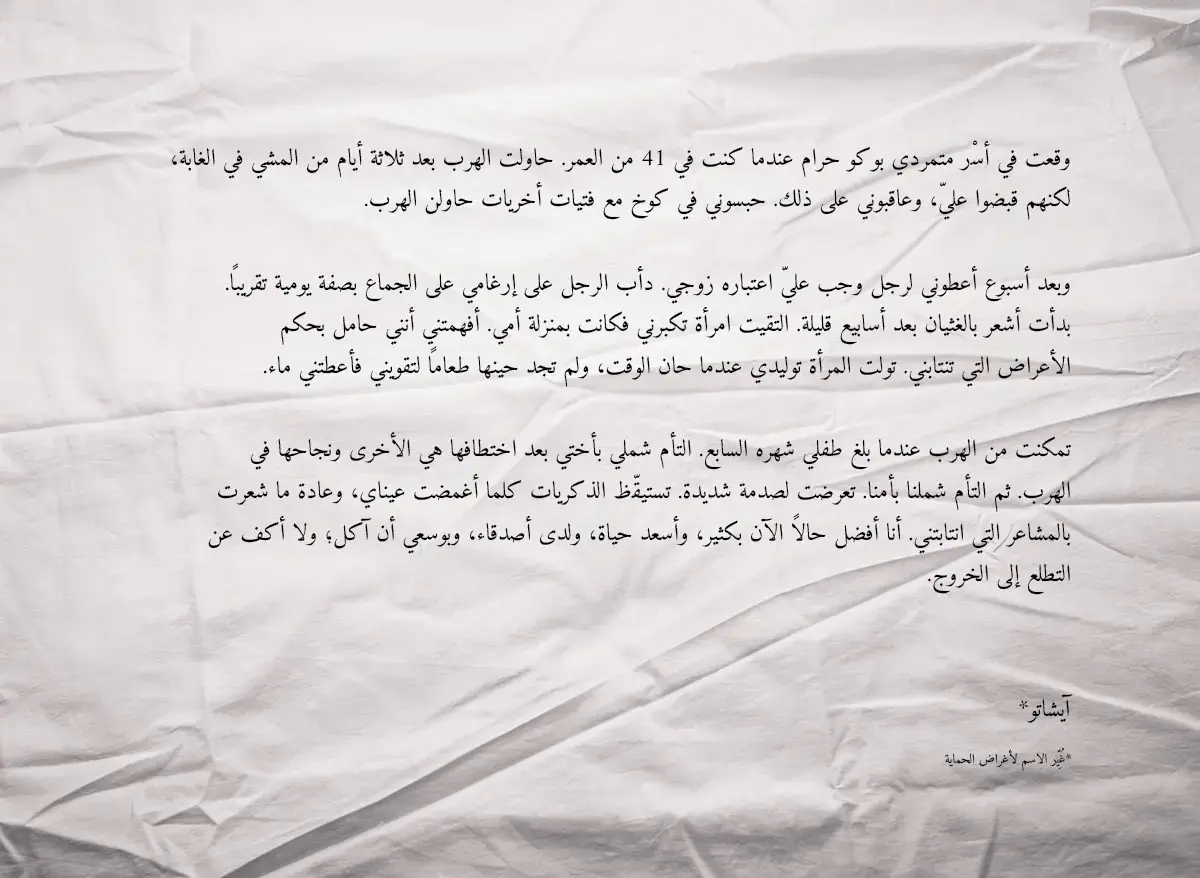 وقعت في أسْر متمردي بوكو حرام عندما كنت في 41 من العمر. حاولت الهرب بعد ثلاثة أيام من المشي في الغابة،
لكنهم قبضوا عليّ، وعاقبوني على ذلك. حبسوني في كوخ مع فتيات أخريات حاولن الهرب.
وبعد أسبوع أعطوني لرجل وجب عليّ اعتباره زوجي. دأب الرجل على إرغامي على الجماع بصفة يومية تقريباً.
بدأت أشعر بالغثيان بعد أسابيع قليلة. التقيت امرأة تكبرني فكانت بمنزلة أمي. أفهمتني أنني حامل بحكم
الأعراض التي تنتابني. تولت المرأة توليدي عندما حان الوقت، ولم تجد حينها طعاماً لتقويني فأعطتني ماء.
تمكنت من الهرب عندما بلغ طفلي شهره السابع. التأم شملي بأختي بعد اختطافها هي الأخرى ونجاحها في
الهرب. ثم التأم شملنا بأمنا. تعرضت لصدمة شديدة. تستيقّظ الذكريات كلما أغمضت عيناي، وعادة ما شعرت
بالمشاعر التي انتابتني. أنا أفضل حالاً الآن بكثير، وأسعد حياة، ولدى أصدقاء، وبوسعي أن آكل؛ ولا أكف عن
التطلع إلى الخروج.
آيشاتو*
*غُيِّر الاسم لأغراض الحماية